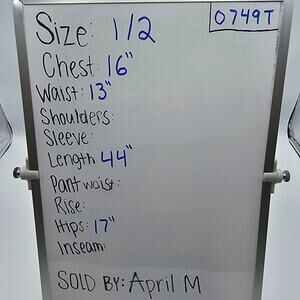 0749T
Size: 1/2
Chest: 16"
Waist: 13"
Shoulders:
Sleeve:
Length 44"
Pant waist:
Rise:
Hips: 17"
Inseam:
SOLD BY: April M